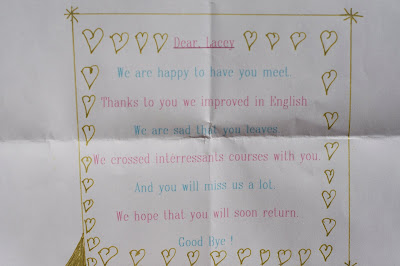 Dear, Lacey
We are happy to have you meet.
Thanks to you we improved in English.
We are sad that you leaves
We crossed interressants courses with you.
And you will miss us a lot.
We hope that you will soon return.
Good Bye !